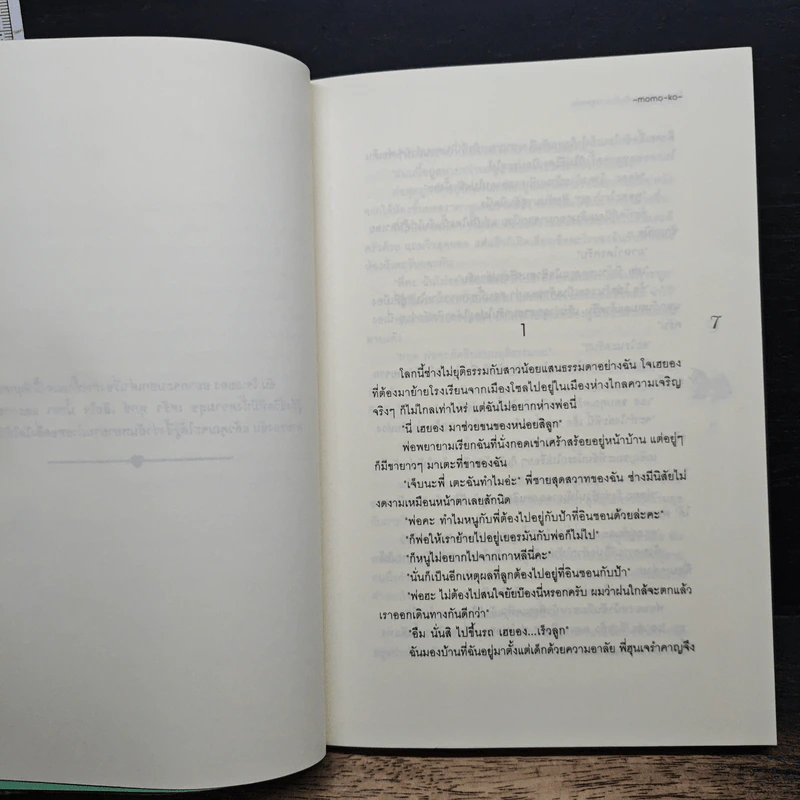 -momo-ko-
7
1
โลกนี้ช่างไม่ยุติธรรมกับสาวน้อยแสนธรรมดาอย่างฉัน โจเฮยอง
ที่ต้องมาย้ายโรงเรียนจากเมืองโซลไปอยู่ในเมืองห่างไกลความเจริญ
จริงๆ ก็ไม่ไกลเท่าไหร่ แต่ฉันไม่อยากห่างพ่อนี่
"นี่ เฮยอง มาช่วยขนของหน่อยสิลูก"
พ่อพยายามเรียกฉันที่นั่งกอดเข่าเศร้าสร้อยอยู่หน้าบ้าน แต่อยู่ๆ
ก็มีขายาวๆ มาเตะที่ขาของฉัน
"เจ็บนะพี่ เตะฉันทำไมอ่ะ" พี่ชายสุดสวาทของฉัน ช่างมีนิสัยไม่
งดงามเหมือนหน้าตาเลยสักนิด
"พ่อคะ ทำไมหนูกับพี่ต้องไปอยู่กับป้าที่อินชอนด้วยล่ะคะ"
"ก็พ่อให้เราย้ายไปอยู่เยอรมันกับพ่อก็ไม่ไป"
"ก็หนูไม่อยากไปจากเกาหลีนี่คะ"
"นั่นก็เป็นอีกเหตุผลที่ลูกต้องไปอยู่ที่อินชอนกับป้า"
"พ่อฮะ ไม่ต้องไปสนใจยัยบ๊องนี่หรอกครับ ผมว่าฝนใกล้จะตกแล้ว
เราออกเดินทางกันดีกว่า"
"อืม นั่นสิ ไปขึ้นรถ เฮยอง...เร็วลูก"
ฉันมองบ้านที่ฉันอยู่มาตั้งแต่เด็กด้วยความอาลัย พี่ฮุนเจรำคาญจึง